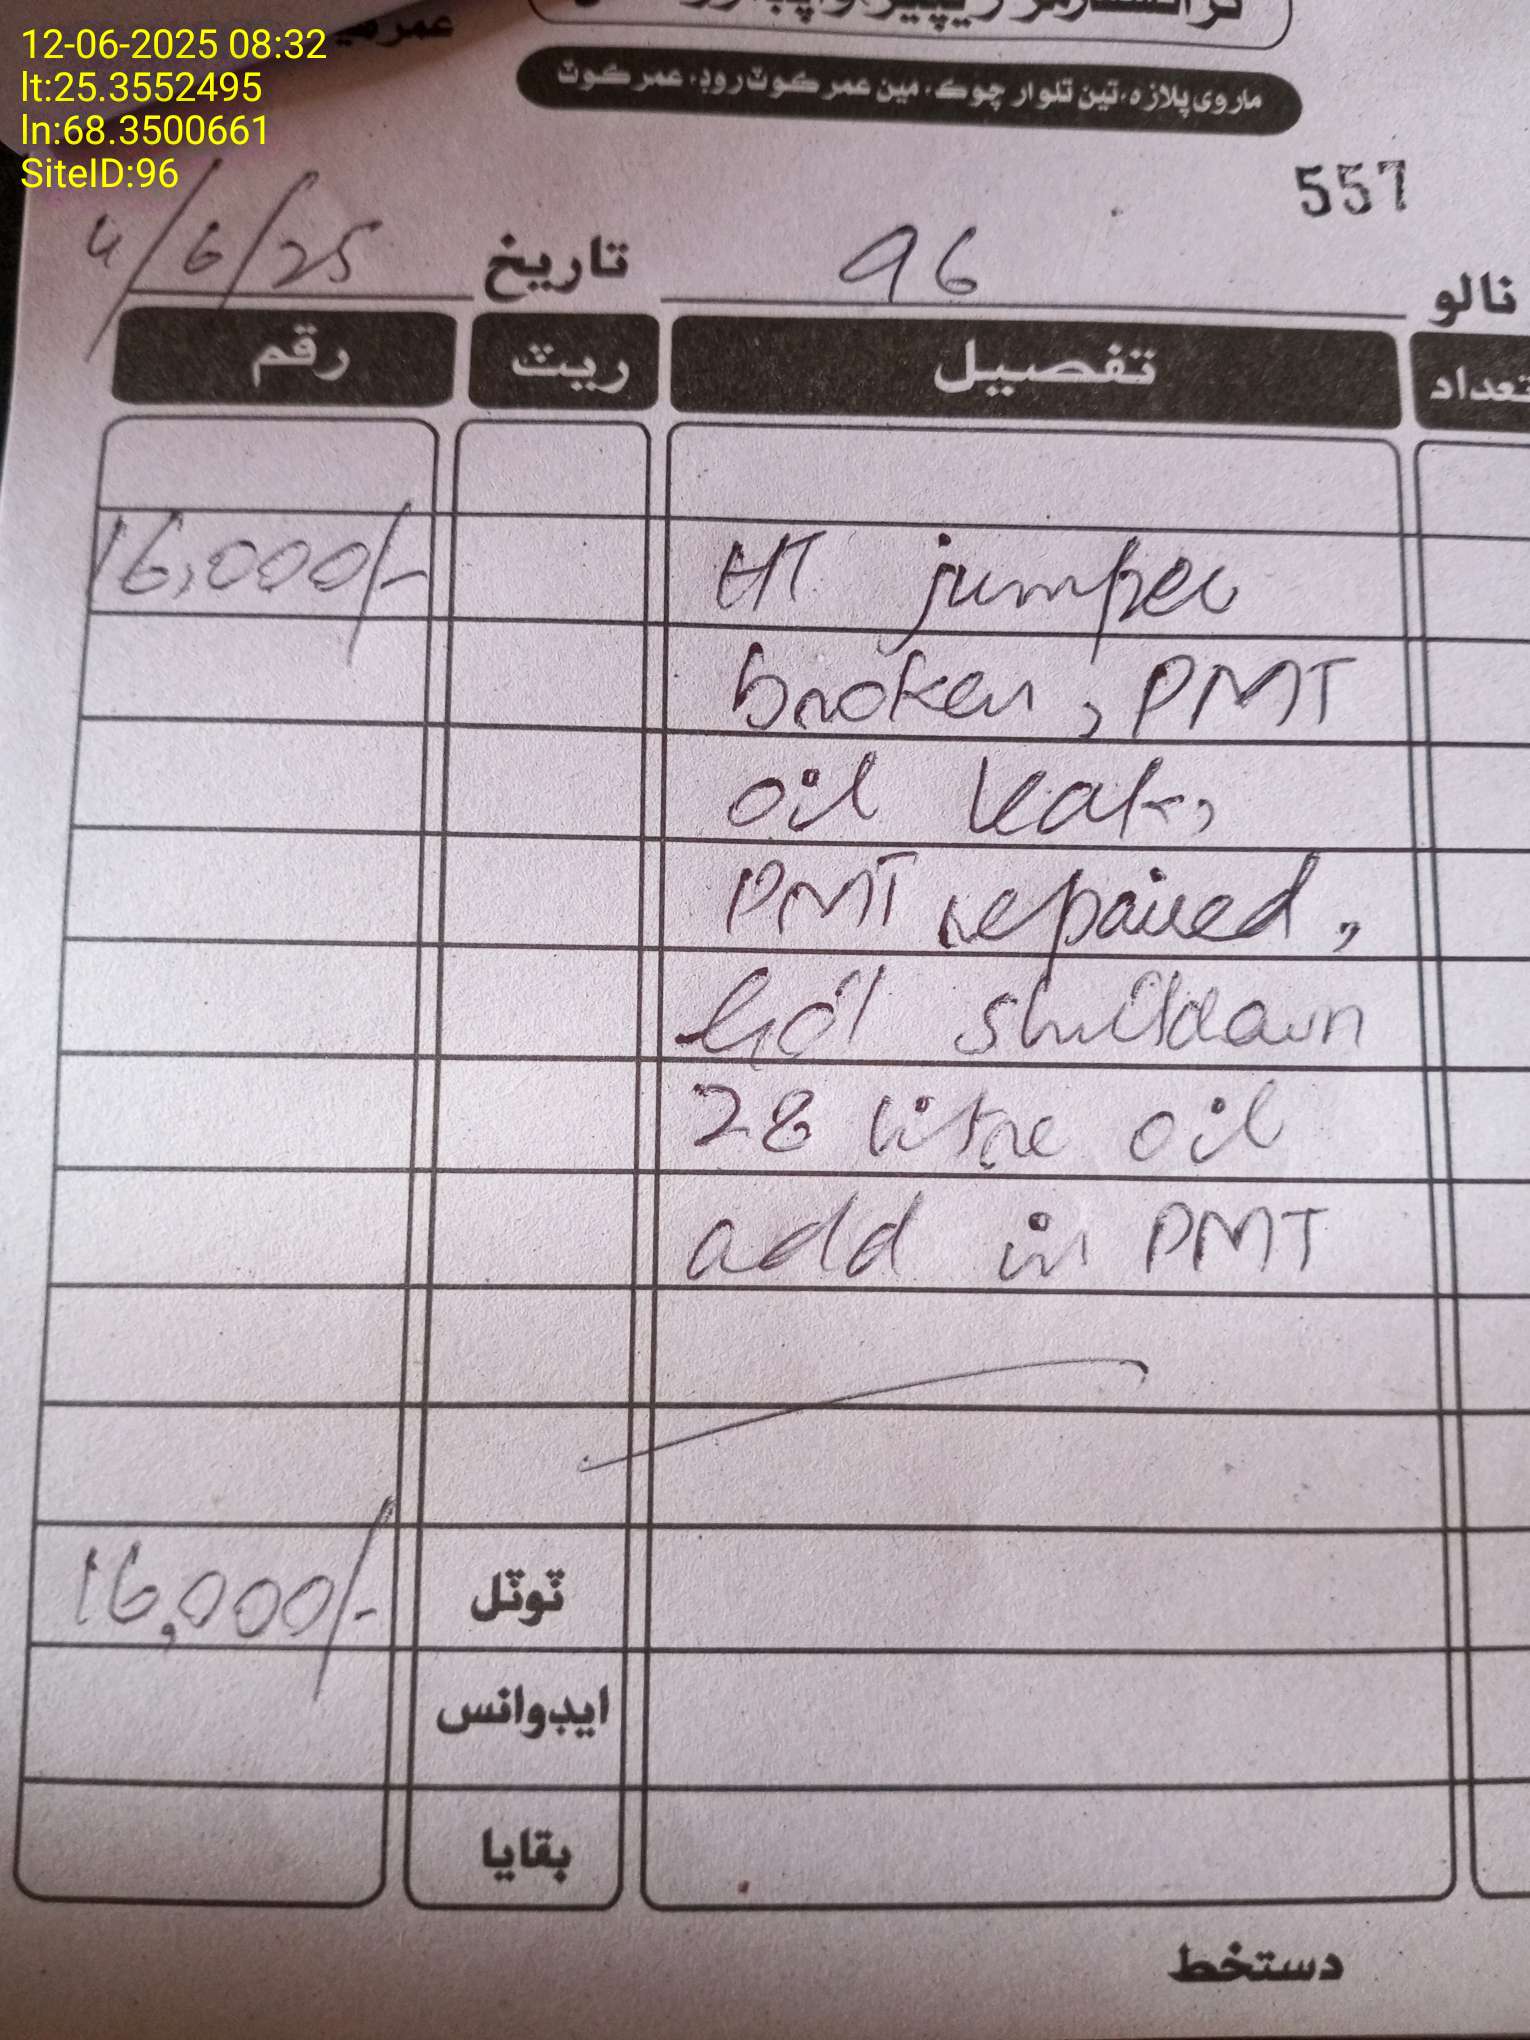 12-06-2025 08:32
lt:25.3552495
ln:68.3500661
SiteID:96
ماروي پلازه، تين تلوار چوڪ، مين عمرڪوٽ روڊ، عمرڪوٽ
557
نالو 96 تاريخ 4/6/25
تعداد تفصيل ريٽ رقم
HT jumper 16,000/-
broken, PMT
oil leak,
PMT repaired,
shutdown
28 litre oil
add in PMT
ٽوٽل 16,000/-
ايڊوانس
بقايا
دستخط